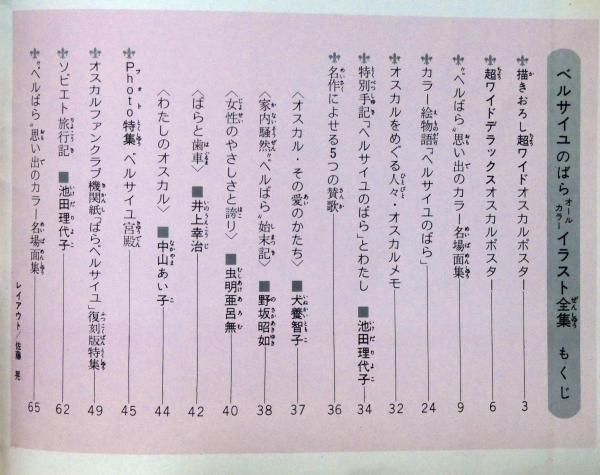 ベルサイユのばら オールカラー イラスト全集 もくじ
描きおろし超ワイドオスカルポスター 3
超ワイドデラックスオスカルポスター 6
〝ベルばら〟思い出のカラー名場面集 9
カラー絵物語「ベルサイユのばら」 24
オスカルをめぐる人々・オスカルメモ 32
特別手記「ベルサイユのばら」とわたし ■池田理代子 34
名作によせる5つの賛歌 36
〈オスカル・その愛のかたち〉 ■犬養智子 37
〈家内騒然〝ベルばら〟始末記〉 ■野坂昭如 38
〈女性のやさしさと誇り〉 ■虫明亜呂無 40
〈ばらと歯車〉 ■井上幸治 42
〈わたしのオスカル〉 ■中山あい子 44
Photo特集 ベルサイユ宮殿 45
オスカルファンクラブ機関紙「ばらベルサイユ」復刻版特集 49
ソビエト旅行記 ■池田理代子 62
〝ベルばら〟思い出のカラー名場面集 65
レイアウト/佐藤 晃